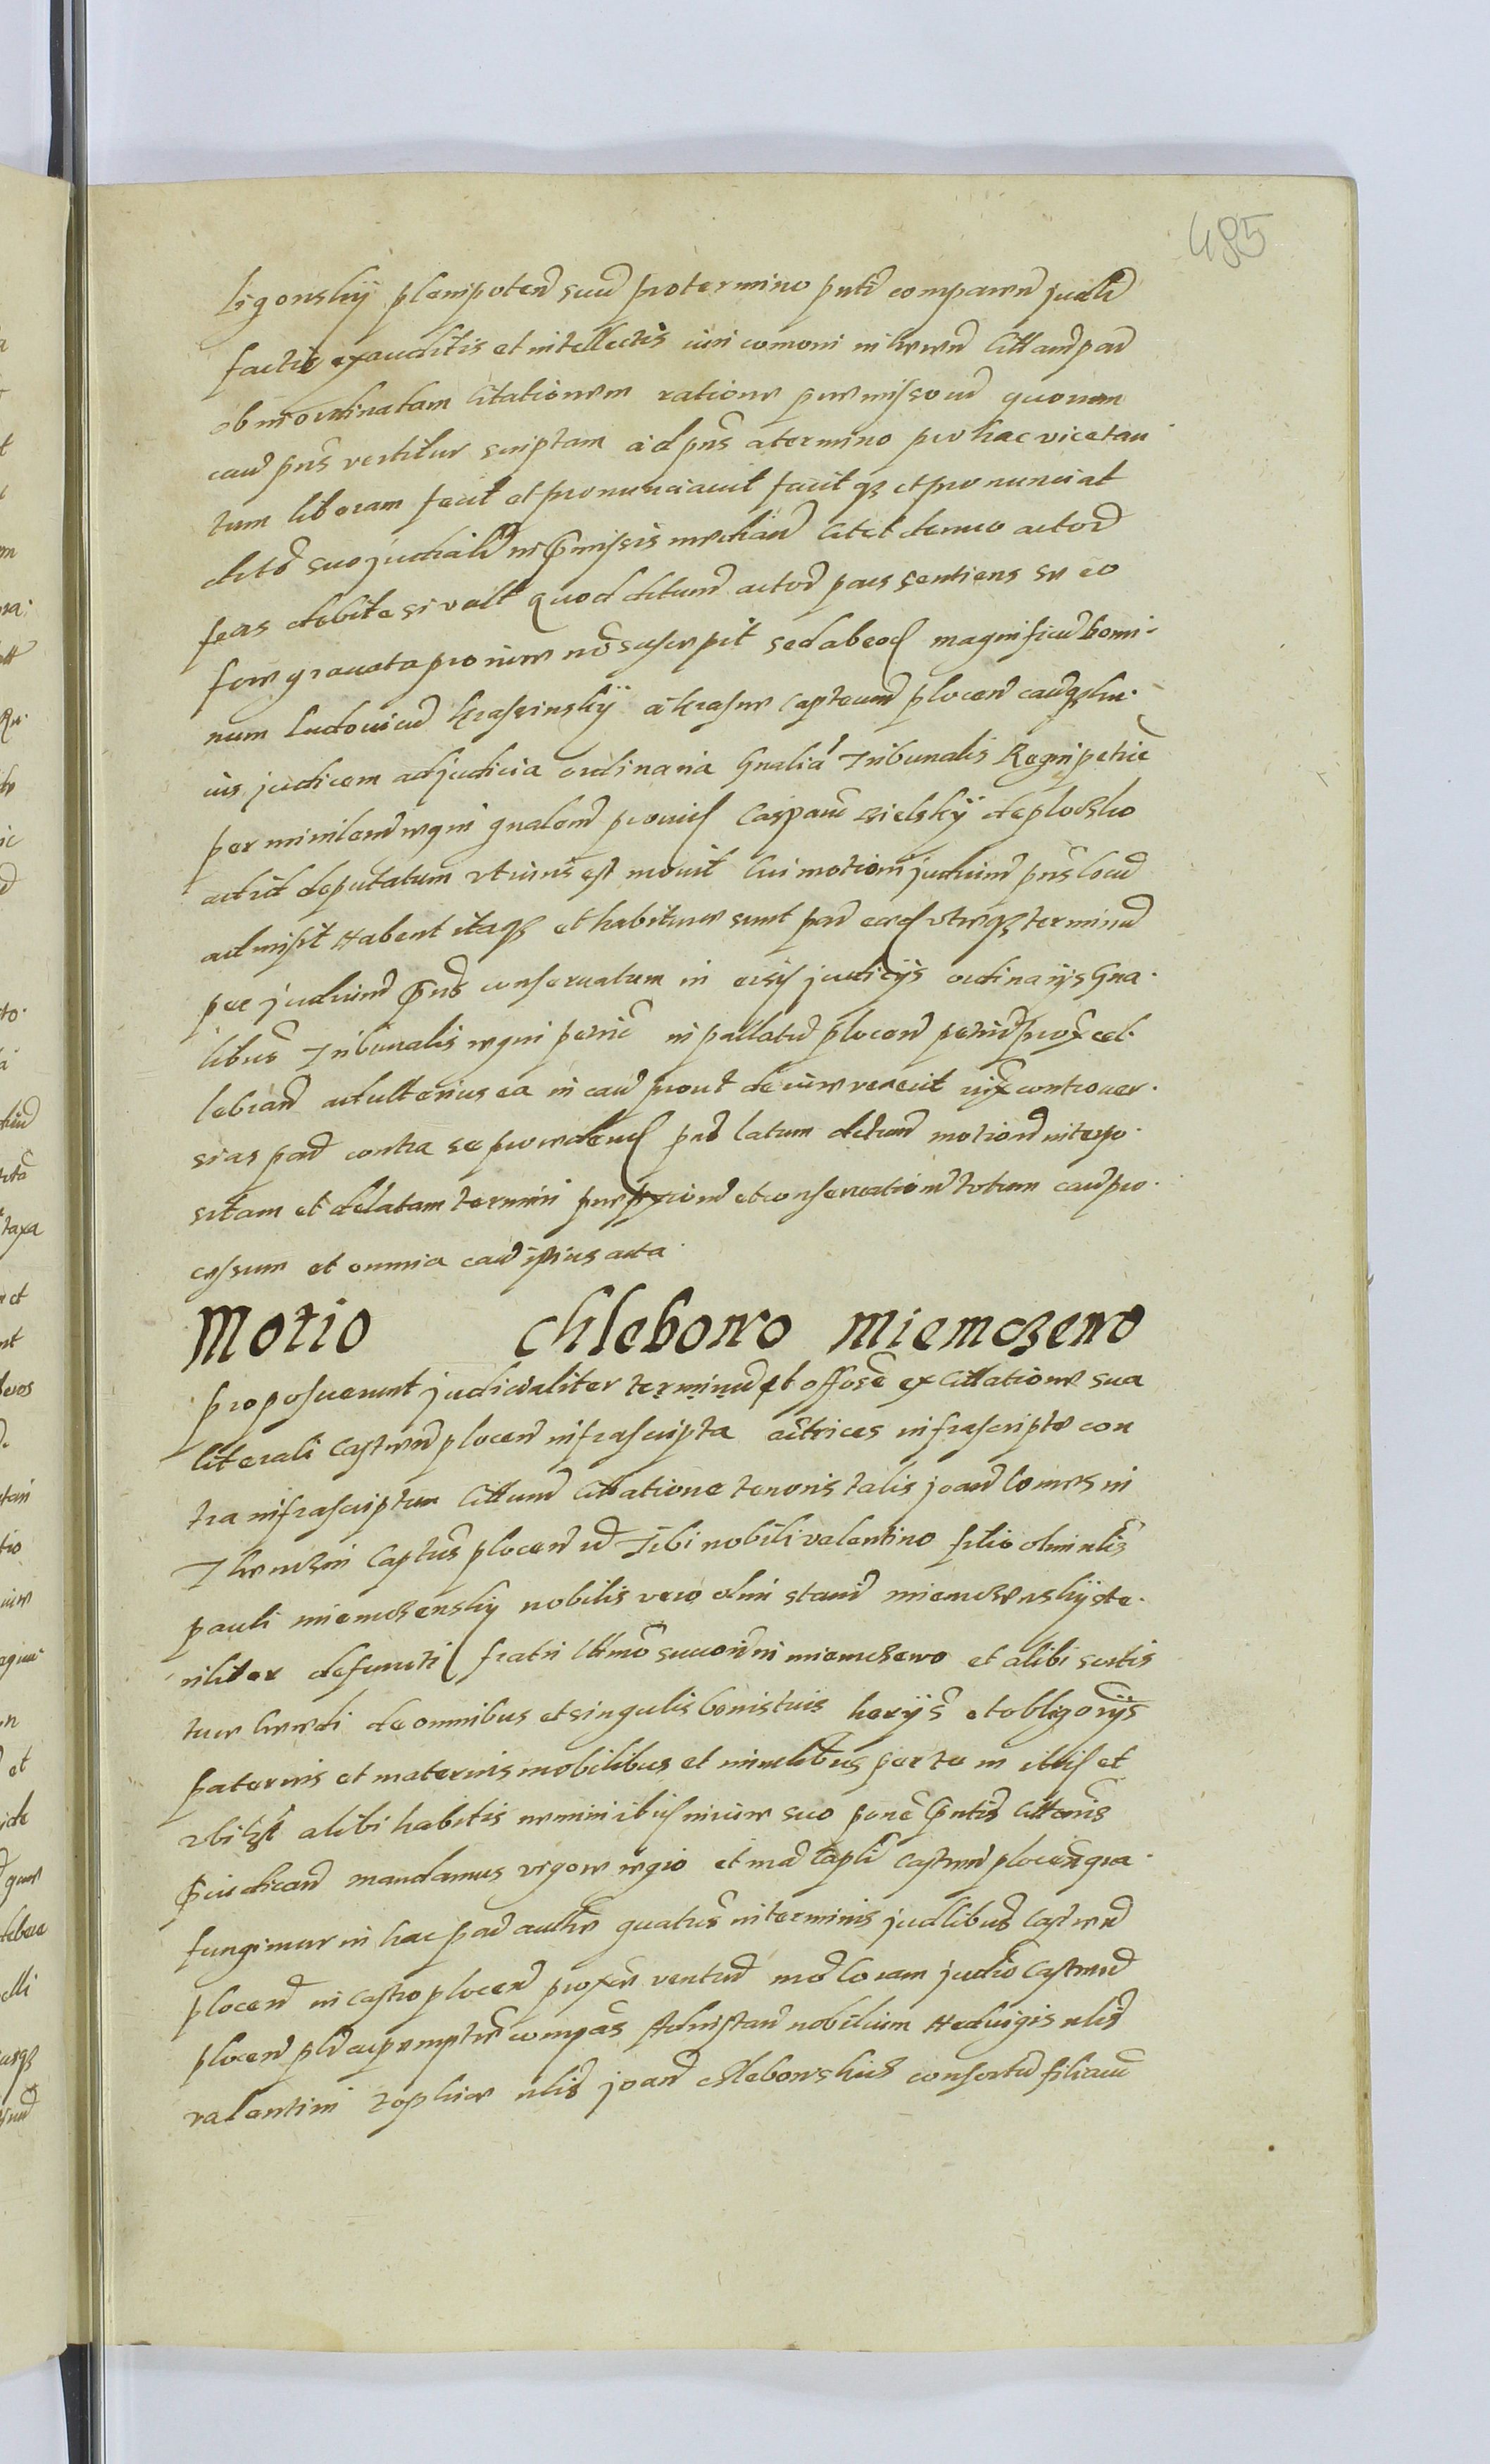 485
Ligonskÿ plenipoten suu pro termino pnti comparen judli
factis exauditis et intellectis iuri comoni inheren Cittam par
ob inordinatam Citationem ratione premissoru quorum
cau pns vertitur scriptam ad pns a termino pro hac vice tan
tum liberam fecit et pronunciauit facit qz et pronunciat
dicto suo judiciali in pmissis mediān Citet denuo actor
pars debite si vult Quod dictum actor pars sentiens se eo
fore grauata pro iure nō suscepit sed ab eod magnificu Domi-
num Ludouicu Krassinskÿ a Krasne Capteum plocen cauqz hu-
ius judicem ad judicia ordinaria Gnalia Tribunalis Regni petric
per ministem regni gnalem prouid Casparu Bielskÿ de plocsko
ad id deputatum vt iuris est mouit Cui motioni judicium pns locu
admisit Habent itaqz et habiture sunt par eaed vtreqz terminu
per judicium pns conseruatum in eisd judicÿs ordinarÿs Gna-
libus Tribunalis regni petric in pallatio plocen petric prox cel-
lebran ad ulterius ea in cau prout de iure venerit iux controuer-
sias par contra se proceden pns latum dictum motionē interpo-
sitam et delatam termini prefixionē et conseruationē totum cau pro-
cessum et omnia cau istius acta
Motio Chlebowo Miemczewo
proposuerunt judicialiter terminū et offose ex Cittatione sua
literali Castren plocen infrascripta actrices infrascripte con
tra infrascriptum Cittum Cittatione tenoris talis joan Comes in
Thenczin Captus plocen id Tibi nobili valentino filio olim nlis
pauli miemczenskÿ nobilis vero olim stanis miemczewskÿ ste-
riliter defuncti fratri Ittimo succori in miemczewo et alibi sortis
tue heredi de omnibus et singulis bonis tuis herÿs et obligorÿs
paternis et maternis mobilibus et immlibus per te in ittis et
vbi lzt alibi habitis nemini ibis in iure suo pone pntis Cittonis
piudican mandamus vigore regio et ma Captli Castren plocen qra
fungimur in hac par autte quatus in terminis judlibus Castren
plocen in Castro plocen proxe ventur mo Coram judio Castren
plocen pli ac perempte compās Ad instan nobilium Hedvigis nlis
valentini Topliw nlis joan Chlebowskis consortu filiaru